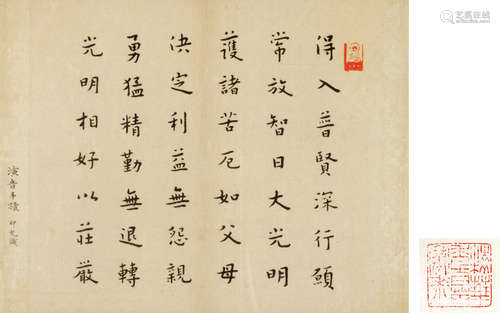 得入普賢深行願
常放智日大光明
護諸苦厄如父母
決定利益無怨親
勇猛精勤無退轉
光明相好以莊嚴
演音